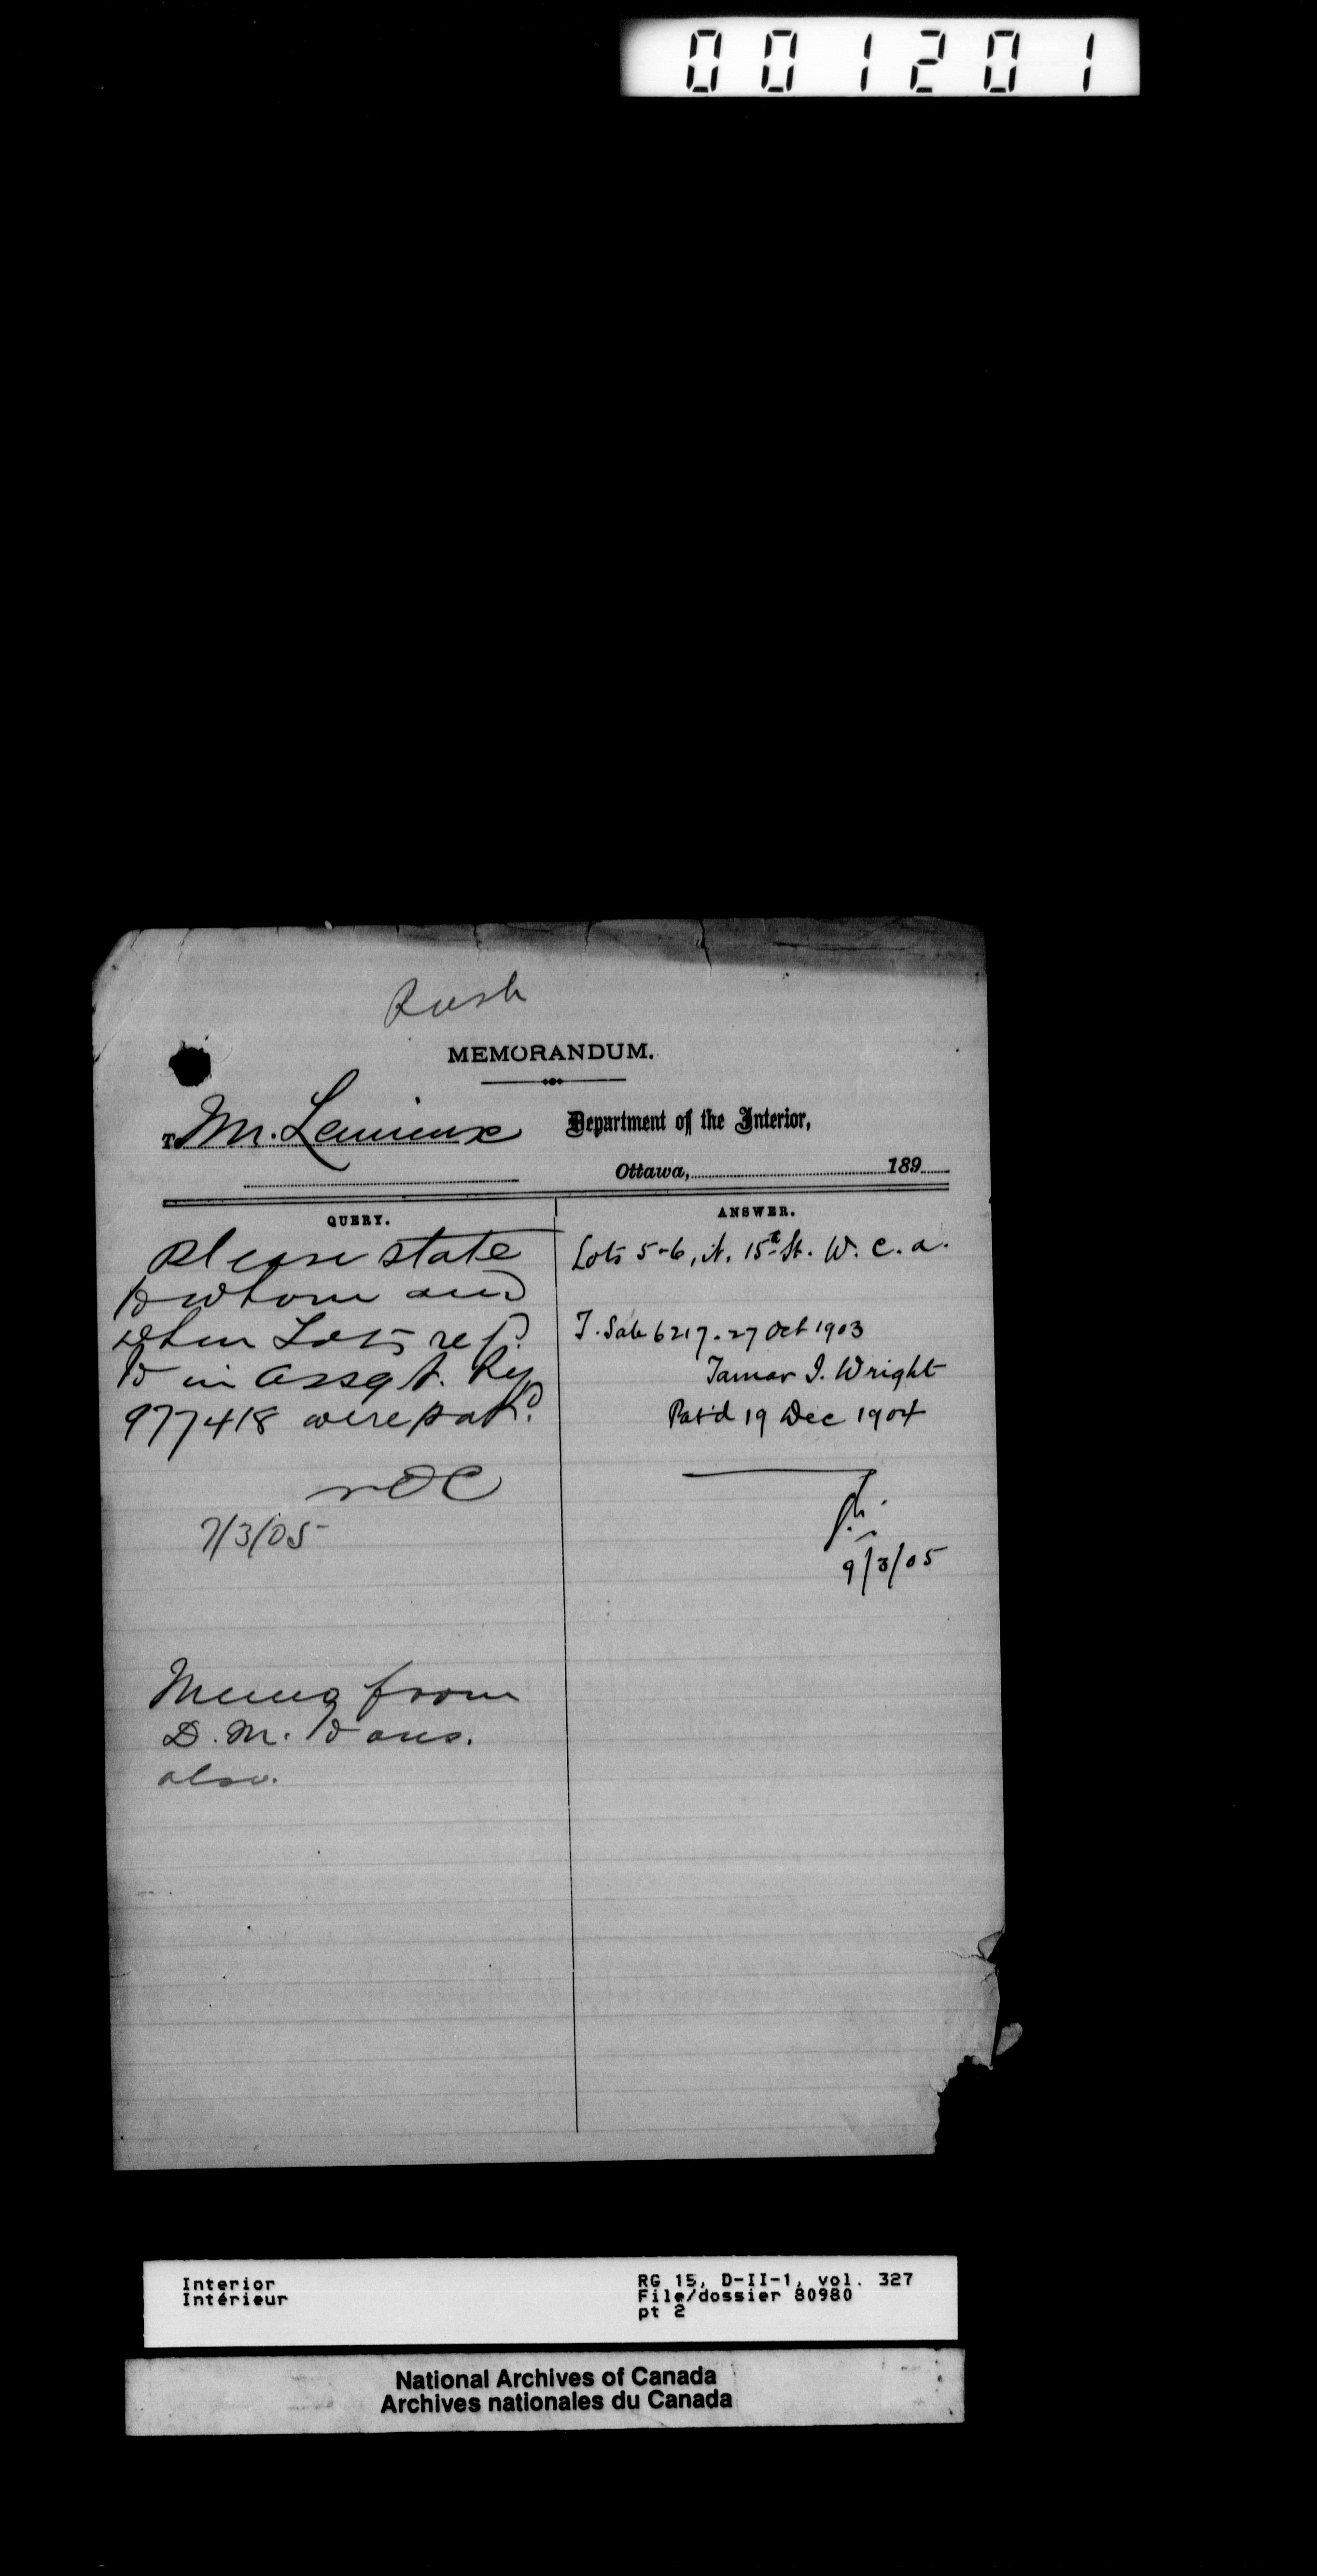 001201
Rush
MEMORANDUM.
To Mr. Lemieux
Department of the Interior,
Ottawa, 189
QUERY.
Please state
to whom and
when Lots ref.d
to in Assgt. Reg
977418 were patd.
7/3/05
from
D. M. to ans.
also.
ANSWER.
Lots 5-6, N. 15th St. W. C. a.
T. Sale 6217. 27 Oct 1903
Tamar I. Wright
Pat'd 19 Dec 1904
9/3/05
Interior
Intérieur
RG 15, D-II-1, vol. 327
File/dossier 80980
pt 2
National Archives of Canada
Archives nationales du Canada